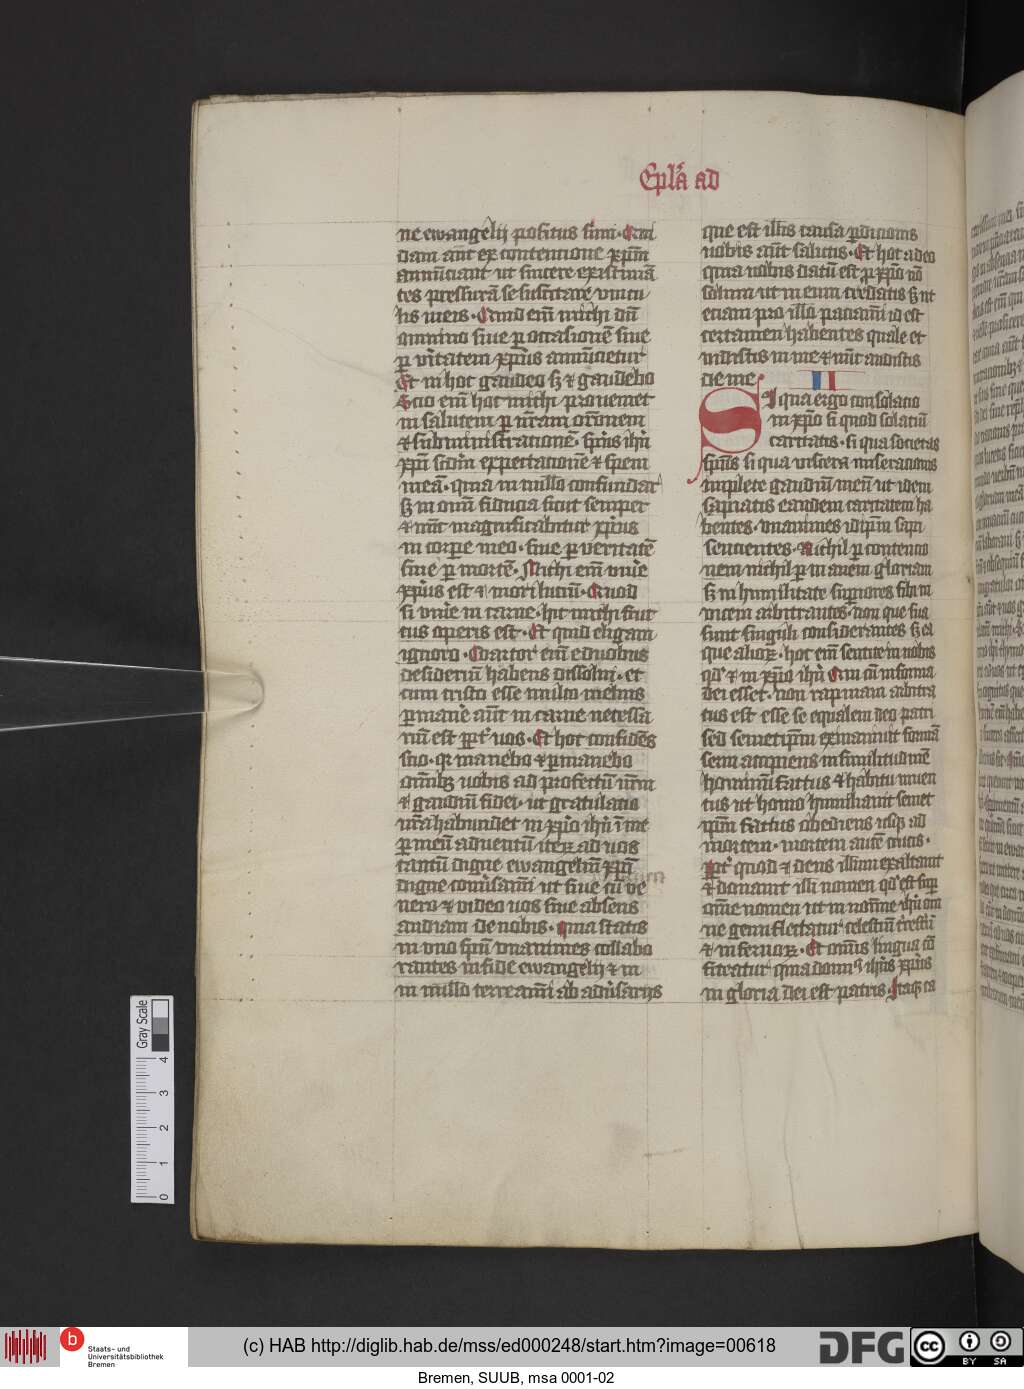 Epl'a ad
ne ewangelij positus sum. Qui
dam aut̄ ex contentione xp̄m
annūciant ut sincere existimā
tes pressurā se suscitare vincu
lis meis. Quid em̄ michi dū
omnino siue p̱ occasionē siue
p̱ v̓itatem xp̄us annūcietur
Et in hoc gaudeo sꝫ ⁊ gaudebo
Scio em̄ hoc michi proueniet
in salutem p̱ vr̄am or̄onem
⁊ subministrationē. sp̄us ih̄u
xp̄i sc̄dm expectationē ⁊ spem
meā. quia in nullo confundar
sꝫ in om̄i fiducia sicut semper
⁊ nūc magnificabitur xp̄us
in corp̱e meo. siue p̱ veritatē
siue p̱ mortē. Michi em̄ viu̓e
xp̄us est ⁊ mori lucrū. Quod
si viu̓e in carne. hic michi fruc
tus operis est. Et quid eligam
ignoro. Coartor em̄ e duobus
desideriū habens dissolui. et
cum cristo esse multo melius
p̱manēe aūt in carne necessa
riū est ꝓpt̓ vos. Et hoc confidēs
scio. qꝛ manebo ⁊ p̱manebo
om̄ibꝫ vobis ad profectū vr̄m
⁊ gaudiū fidei. ut gratulatio
vr̄a habundet in xp̄o ih̄u ī me
p̱ meū aduentū iteꝝ ad vos
tantū digne ewangeliū xp̄i
digne conu̓samī ut siue cū ve
nero ⁊ video vos siue absens
audiam de nobis. Quia statis
in vno sp̄u vnanimes collabo
rantes in fide ewangelij ⁊ in
in nullo terreamī ab adu̓sarijs
que est illis causa p̱dicionis
vobis aūt salutis. Et hoc a deo
quia vobis datū est p̱ xp̄o nō
solum ut in eum credatis sꝫ ut
etiam pro illo paciamī id est
certamen habentes quale et
vidistis in me ⁊ nūc audistis
de me. II
Si qua ergo consolacio
in xp̄o si quod solatiū
caritatis. si qua societas
sp̄us si qua viscera miseracionis
implete gaudiū meū ut idem
sapiatis eandem caritatem ha
bentes. vnanimes idip̄m sapi
sencientes. Nichil p̱ contencio
nem nichil p̱ inanem gloriam
sꝫ in humilitate sup̱iores sibi in
uicem arbitrantes. non que sua
sunt singuli considerantes sꝫ ea
que alioꝝ. hoc em̄ sentite in nobis
qd̓ ⁊ in xp̄o ih̄u Qui cū in forma
dei esset. non rapinam arbitra
tus est esse se equalem deo patri
sed semetip̄m exinaniuit formā
serui accipiens in similitudinē
hominū factus ⁊ habitu inuen
tus ut homo humiliauit semet
ip̄m factus obediens usqꝫ ad
mortem. mortem autē crucis.
Ꝓpt̓ quod ⁊ deus illum exaltauit
⁊ donauit illi nomen qd̓ est sup̱
om̄e nomen ut in noīne ih̄u om
ne genu flectatur celestiū t̓restriū
⁊ infernoꝝ. Et omnis lingua cō
fiteatur quia domin⁹ ih̄us xp̄us
in gloria dei est patris. Itaqꝫ ca
Gray Scale
4
3
2
1
0
Staats- und
Universitätsbibliothek
Bremen
(c) HAB http://diglib.hab.de/mss/ed000248/start.htm?image=00618
DFG
cc
BY SA
Bremen, SUUB, msa 0001-02